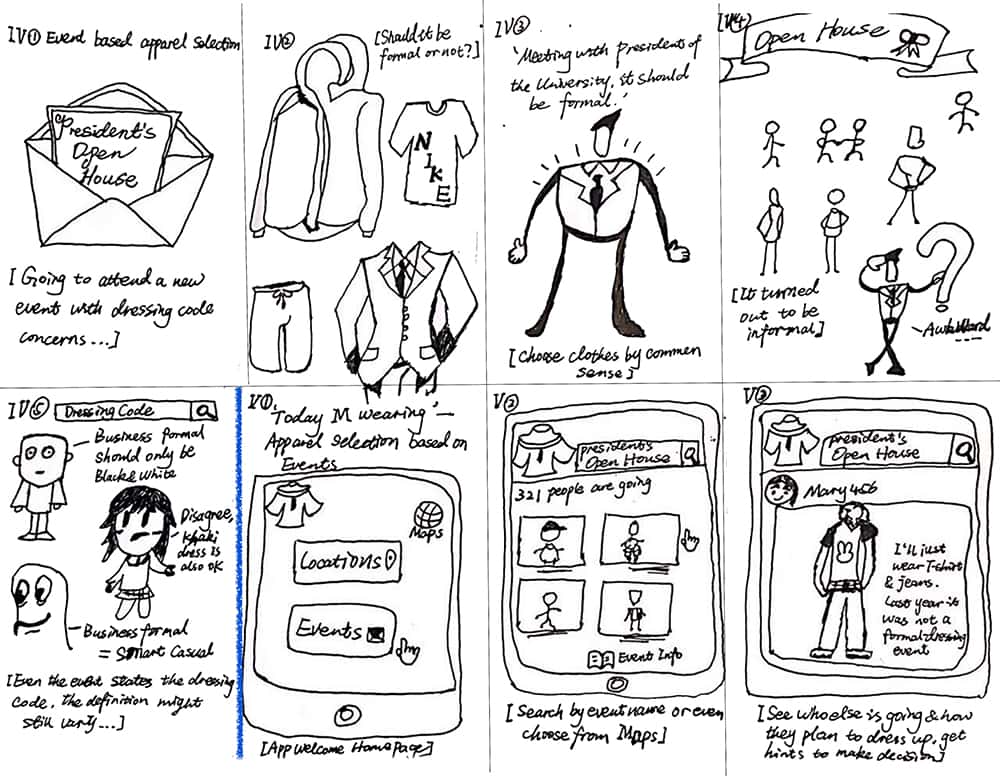 IV① Event based apparel selection
President's
Open
House
[Going to attend a new
event with dressing code
concerns...]
IV②
[Should it be
formal or not?]
NIKE
IV③
'Meeting with presidents of
the University, it should
be formal.'
[Choose clothes by commen
sense]
IV④
Open House
[It turned
out to be
informal]
Awkward
IV⑤
Dressing Code
Business formal
should only be
Black & White
Disagree,
khaki
dress is
also OK
Business formal
= Smart Casual
[Even the event states the dressing
code, the definition might
still varity...]
V①
'Today M wearing'—
Apparel Selection based on
Events
Maps
Locations
Events
[App welcome Home Page]
V②
president's
Open House
321 people are going
Event Info
[Search by event name or even
choose from Maps]
V③
president's
Open House
Mary456
I'll just
wear T-shirt
& jeans.
Last year it
was not a
formal dressing
event
[See who else is going & how
they plan to dress up, get
hints to make decision]